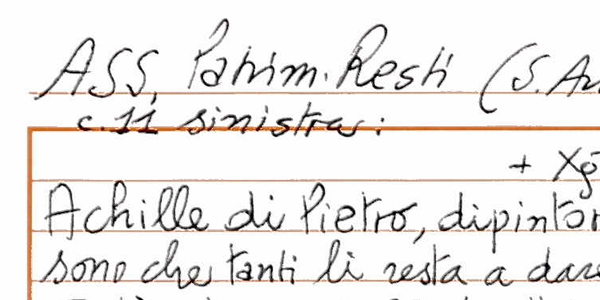 ASS, Patrim. Resti (S. An
c. 11 sinistra:
+ Xõ
Achille di Pietro, dipintor
sono che tanti li resta a dare